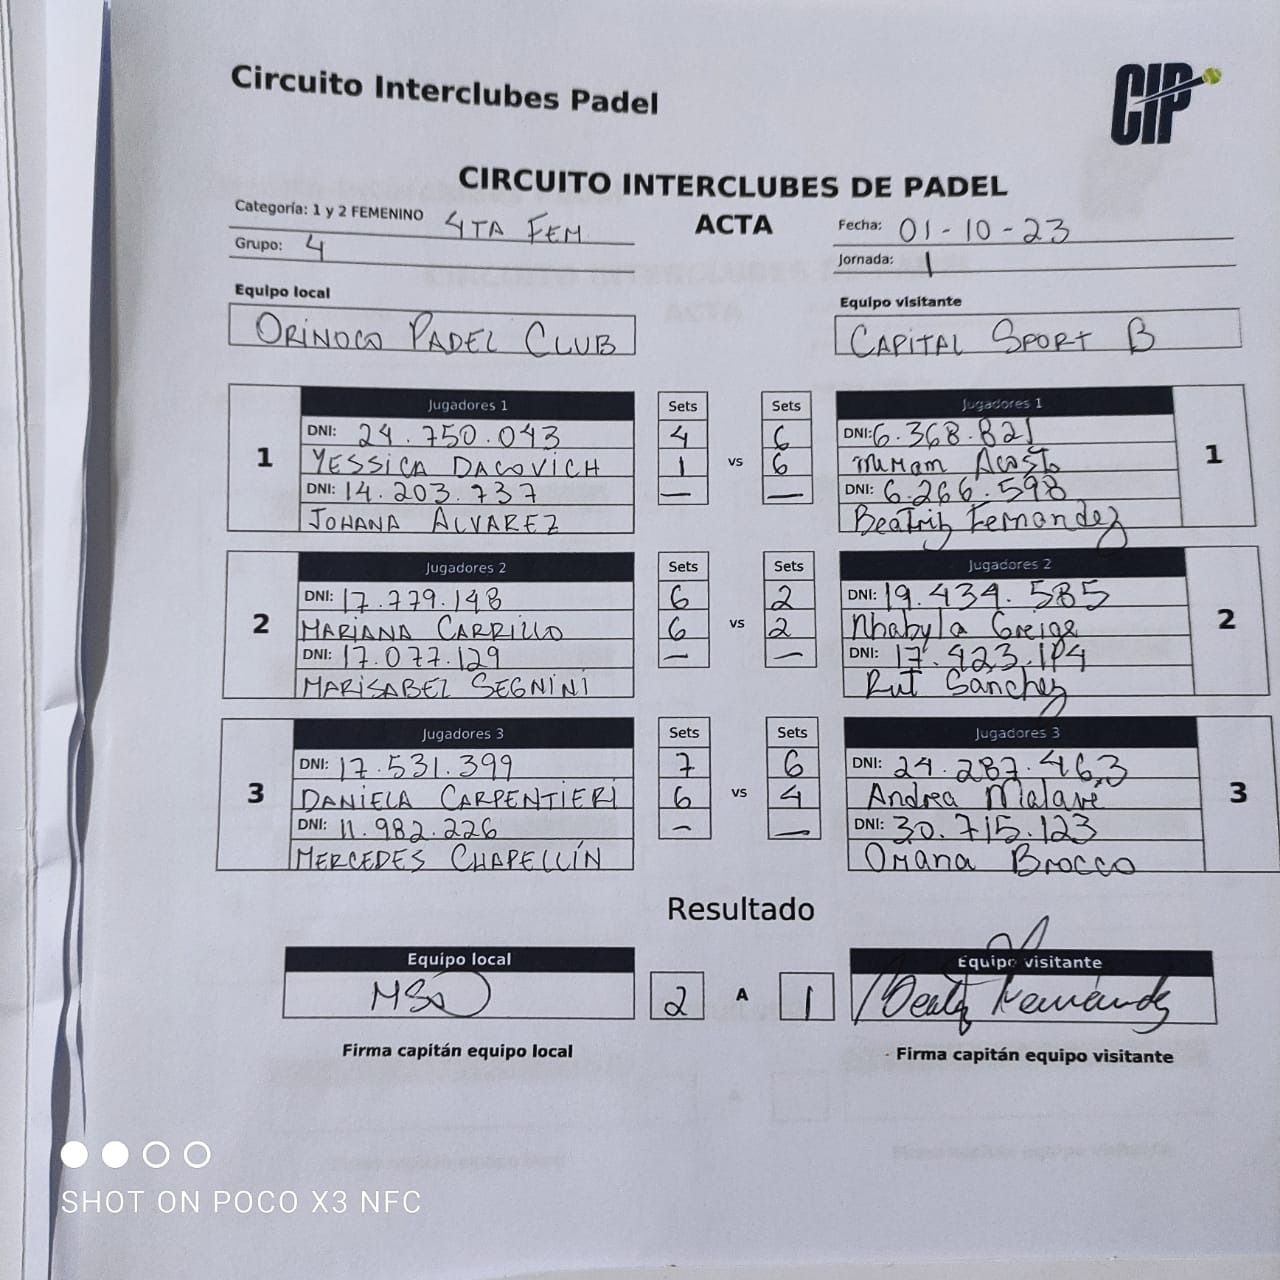 Circuito Interclubes Padel
CIP
CIRCUITO INTERCLUBES DE PADEL
ACTA
Categoría: 1 y 2 FEMENINO 4TA FEM.
Fecha: 01-10-23
Grupo: 4
Jornada: 1
Equipo local
Equipo visitante
ORINOCO PADEL CLUB
CAPITAL SPORT B
1
Jugadores 1
Sets
Sets
Jugadores 1
1
DNI: 24.750.043
4
6
DNI: 6.368.821
YESSICA DACOVICH
1
vs
6
Miriam Acosta
DNI: 14.203.737
—
—
DNI: 6.266.598
JOHANA ALVAREZ
Beatriz Fernandez
2
Jugadores 2
Sets
Sets
Jugadores 2
2
DNI: 17.779.148
6
2
DNI: 19.434.585
MARIANA CARRILLO
6
vs
2
Nhabyla Greige
DNI: 17.077.129
—
—
DNI: 17.423.
MARISABEL SEGNINI
Rut Sánchez
3
Jugadores 3
Sets
Sets
Jugadores 3
3
DNI: 17.531.399
7
6
DNI: 24.287.463
DANIELA CARPENTIERI
6
vs
4
Andrea Malavé
DNI: 11.982.226
-
—
DNI: 30.715.123
MERCEDES CHAPELLÍN
Oriana Brocco
Resultado
Equipo local
Equipo visitante
2
A
1
Beatriz Fernández
Firma capitán equipo local
Firma capitán equipo visitante
SHOT ON POCO X3 NFC